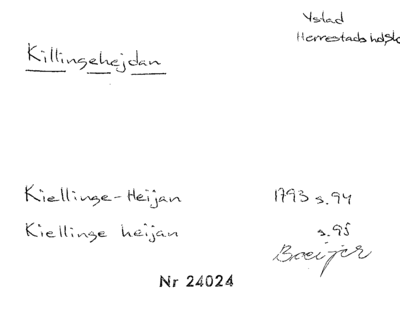 Ystad
Herrestads hds
Killingehejdan
Kiellinge-Heijan 1793 s.94
Kiellinge heijan s.95
Broeijer
Nr 24024